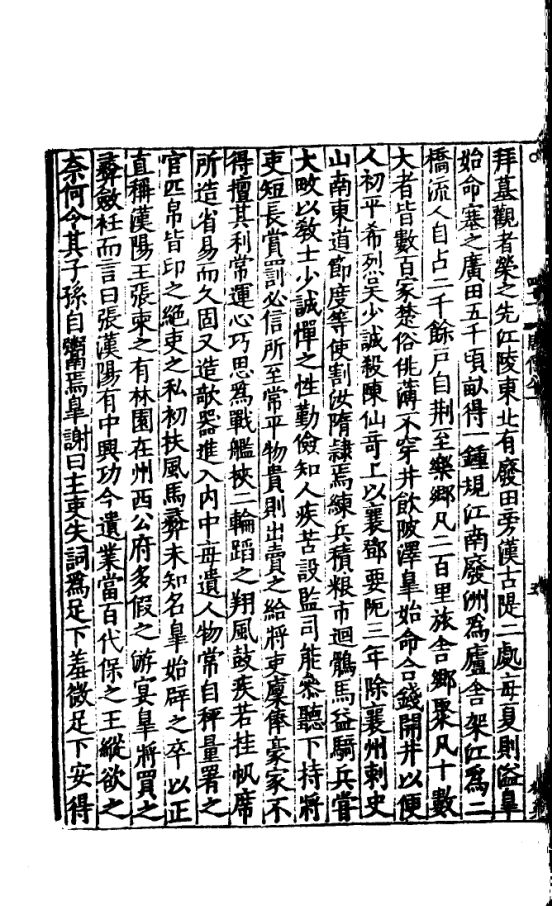 拜墓觀者榮之先江陵東北有廢田旁漢古隄二處每夏則溢皐
始命塞之廣田五千頃畝得一鍾規江南廢洲爲廬舍架江爲二
橋流人自占二千餘戸自荆至樂鄉凡二百里旅舎鄉聚凡十數
大者皆數百家楚俗佻薄不穿井飲陂澤皐始命合錢開井以便
人初平希烈吴少誠殺陳仙奇上以襄鄧要阨三年除襄州刺史
山南東道節度等使割汝隋隸焉練兵積粮市迴鶻馬益騎兵嘗
大畋以敎士少誠憚之性勤儉知人疾苦設監司能叅聽下持將
吏短長賞罰必信所至常平物貴則出賣之給將吏廩俸豪家不
得擅其利常運心巧思爲戰艦挾二輪蹈之翔風鼓疾若挂帆席
所造省易而久固又造欹器進入内中毎遺人物常自秤量署之
官匹帛皆印之絶吏之私初扶風馬彞未知名皐始辟之卒以正
直稱漢陽王張柬之有林園在州西公府多假之游宴皐將買之
彞斂衽而言曰張漢陽有中興功今遺業當百代保之王縱欲之
奈何令其子孫自鬻焉皐謝曰主吏失詞爲足下羞微足下安得